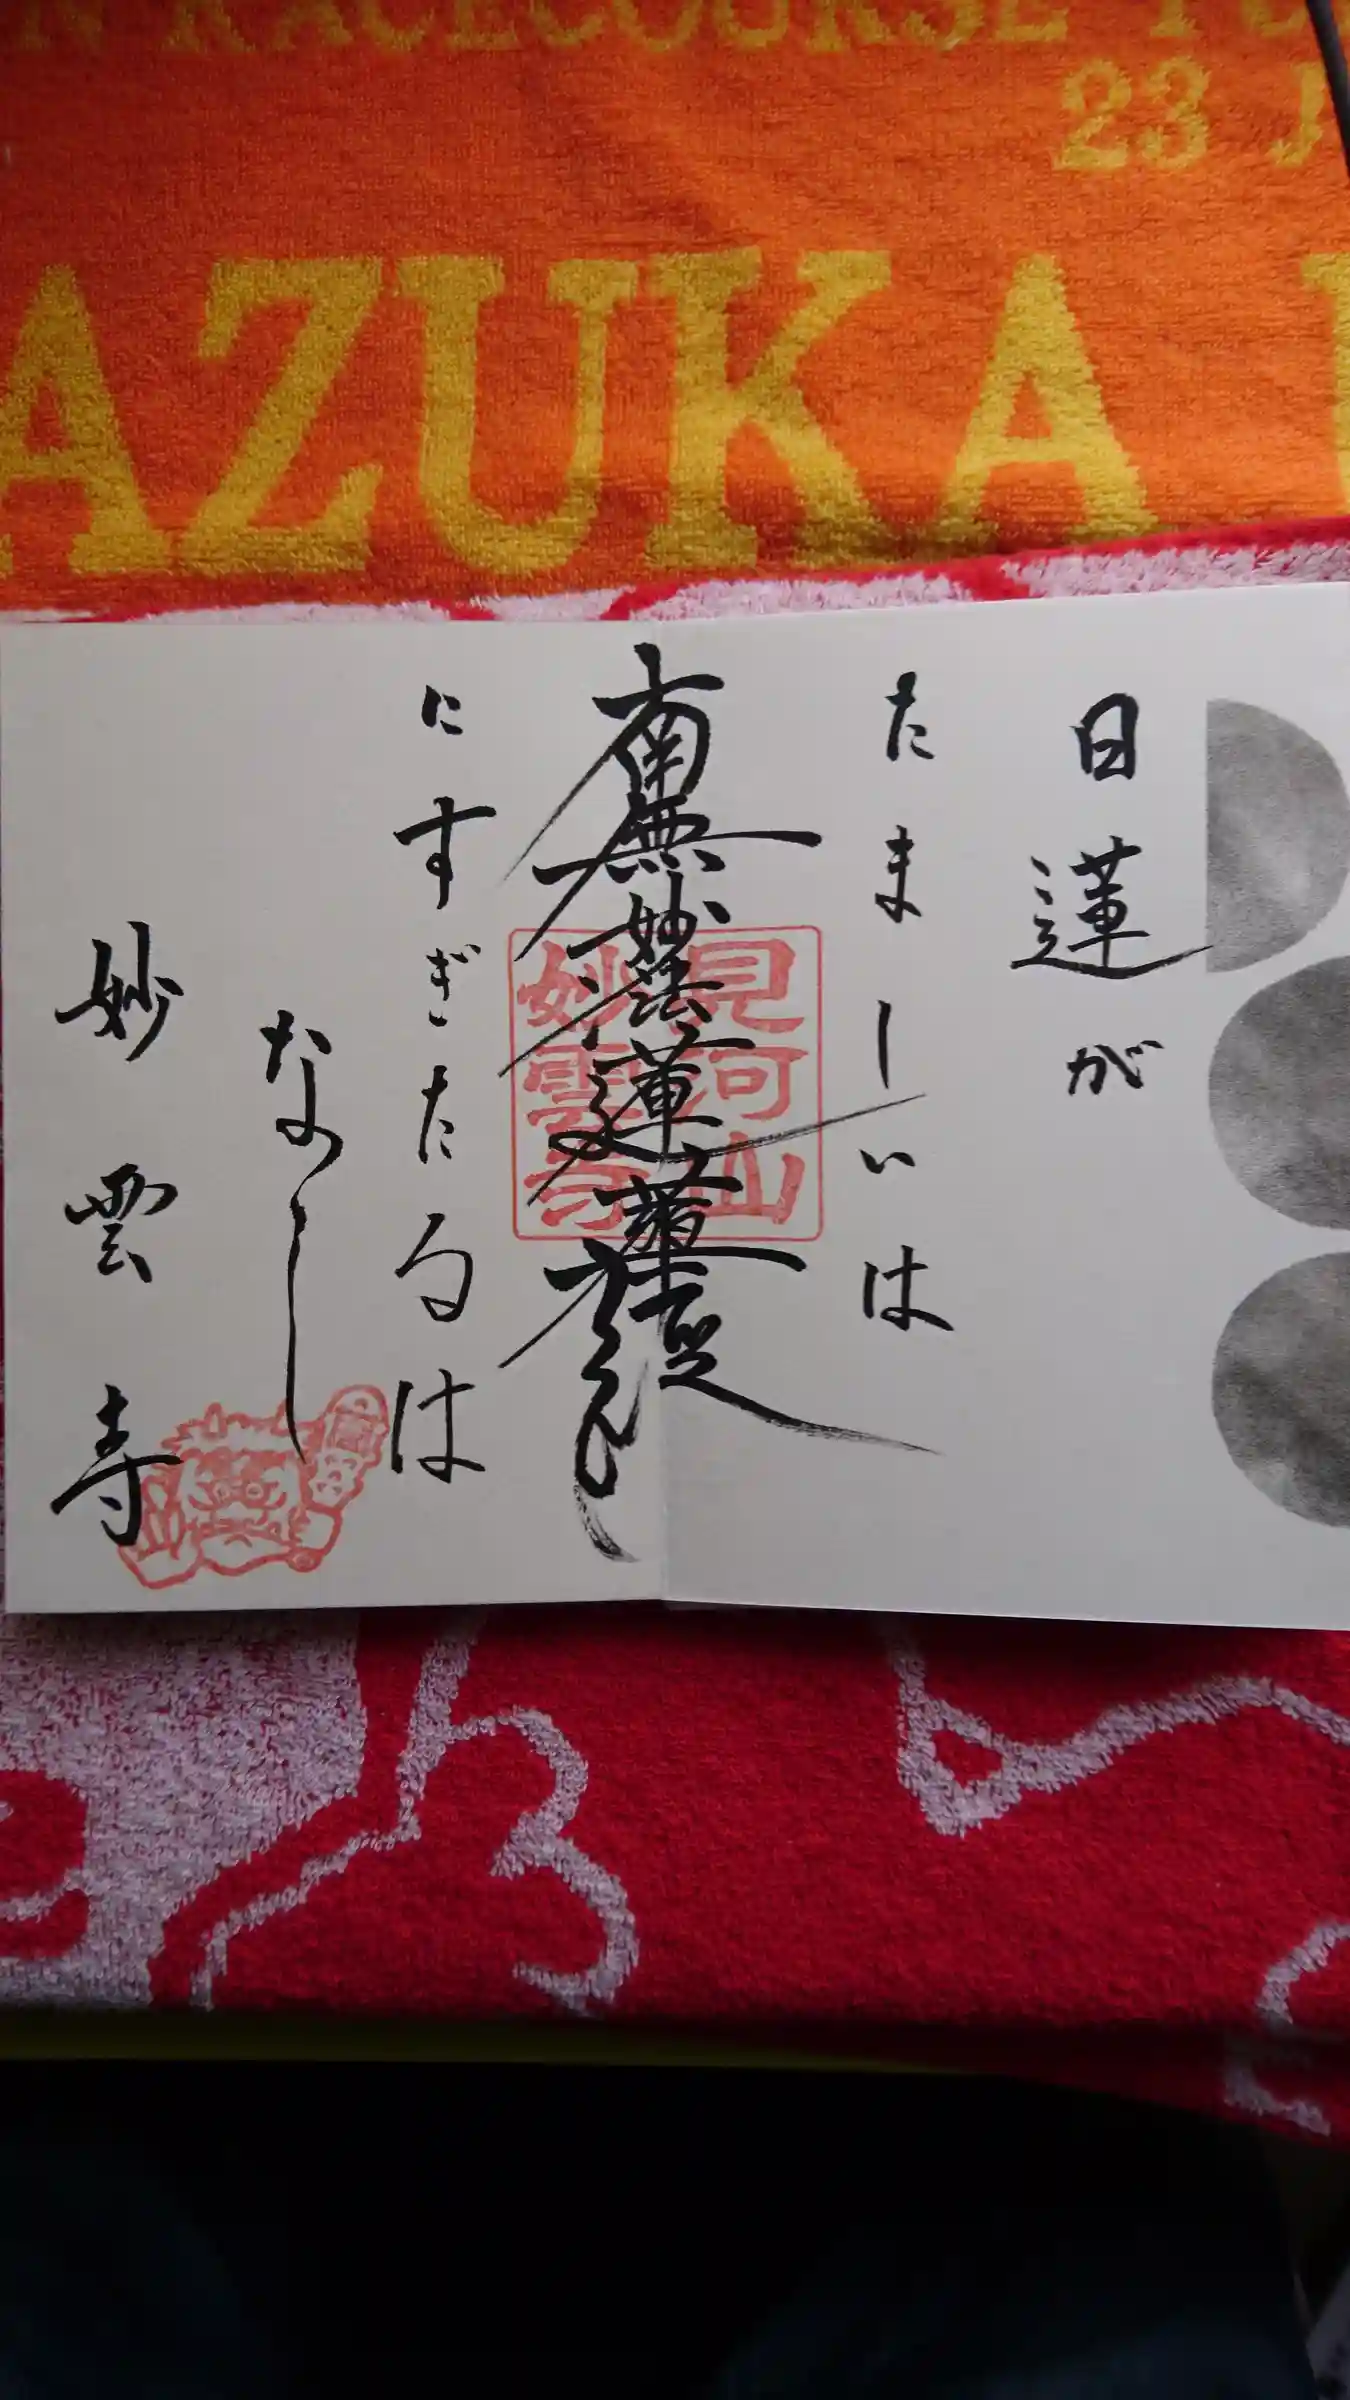 RACECOURSE
23 J
AZUKA
日蓮が
たましいは
南無妙法蓮華経
にすぎたるは
なし
妙雲寺
見河山
妙雲寺